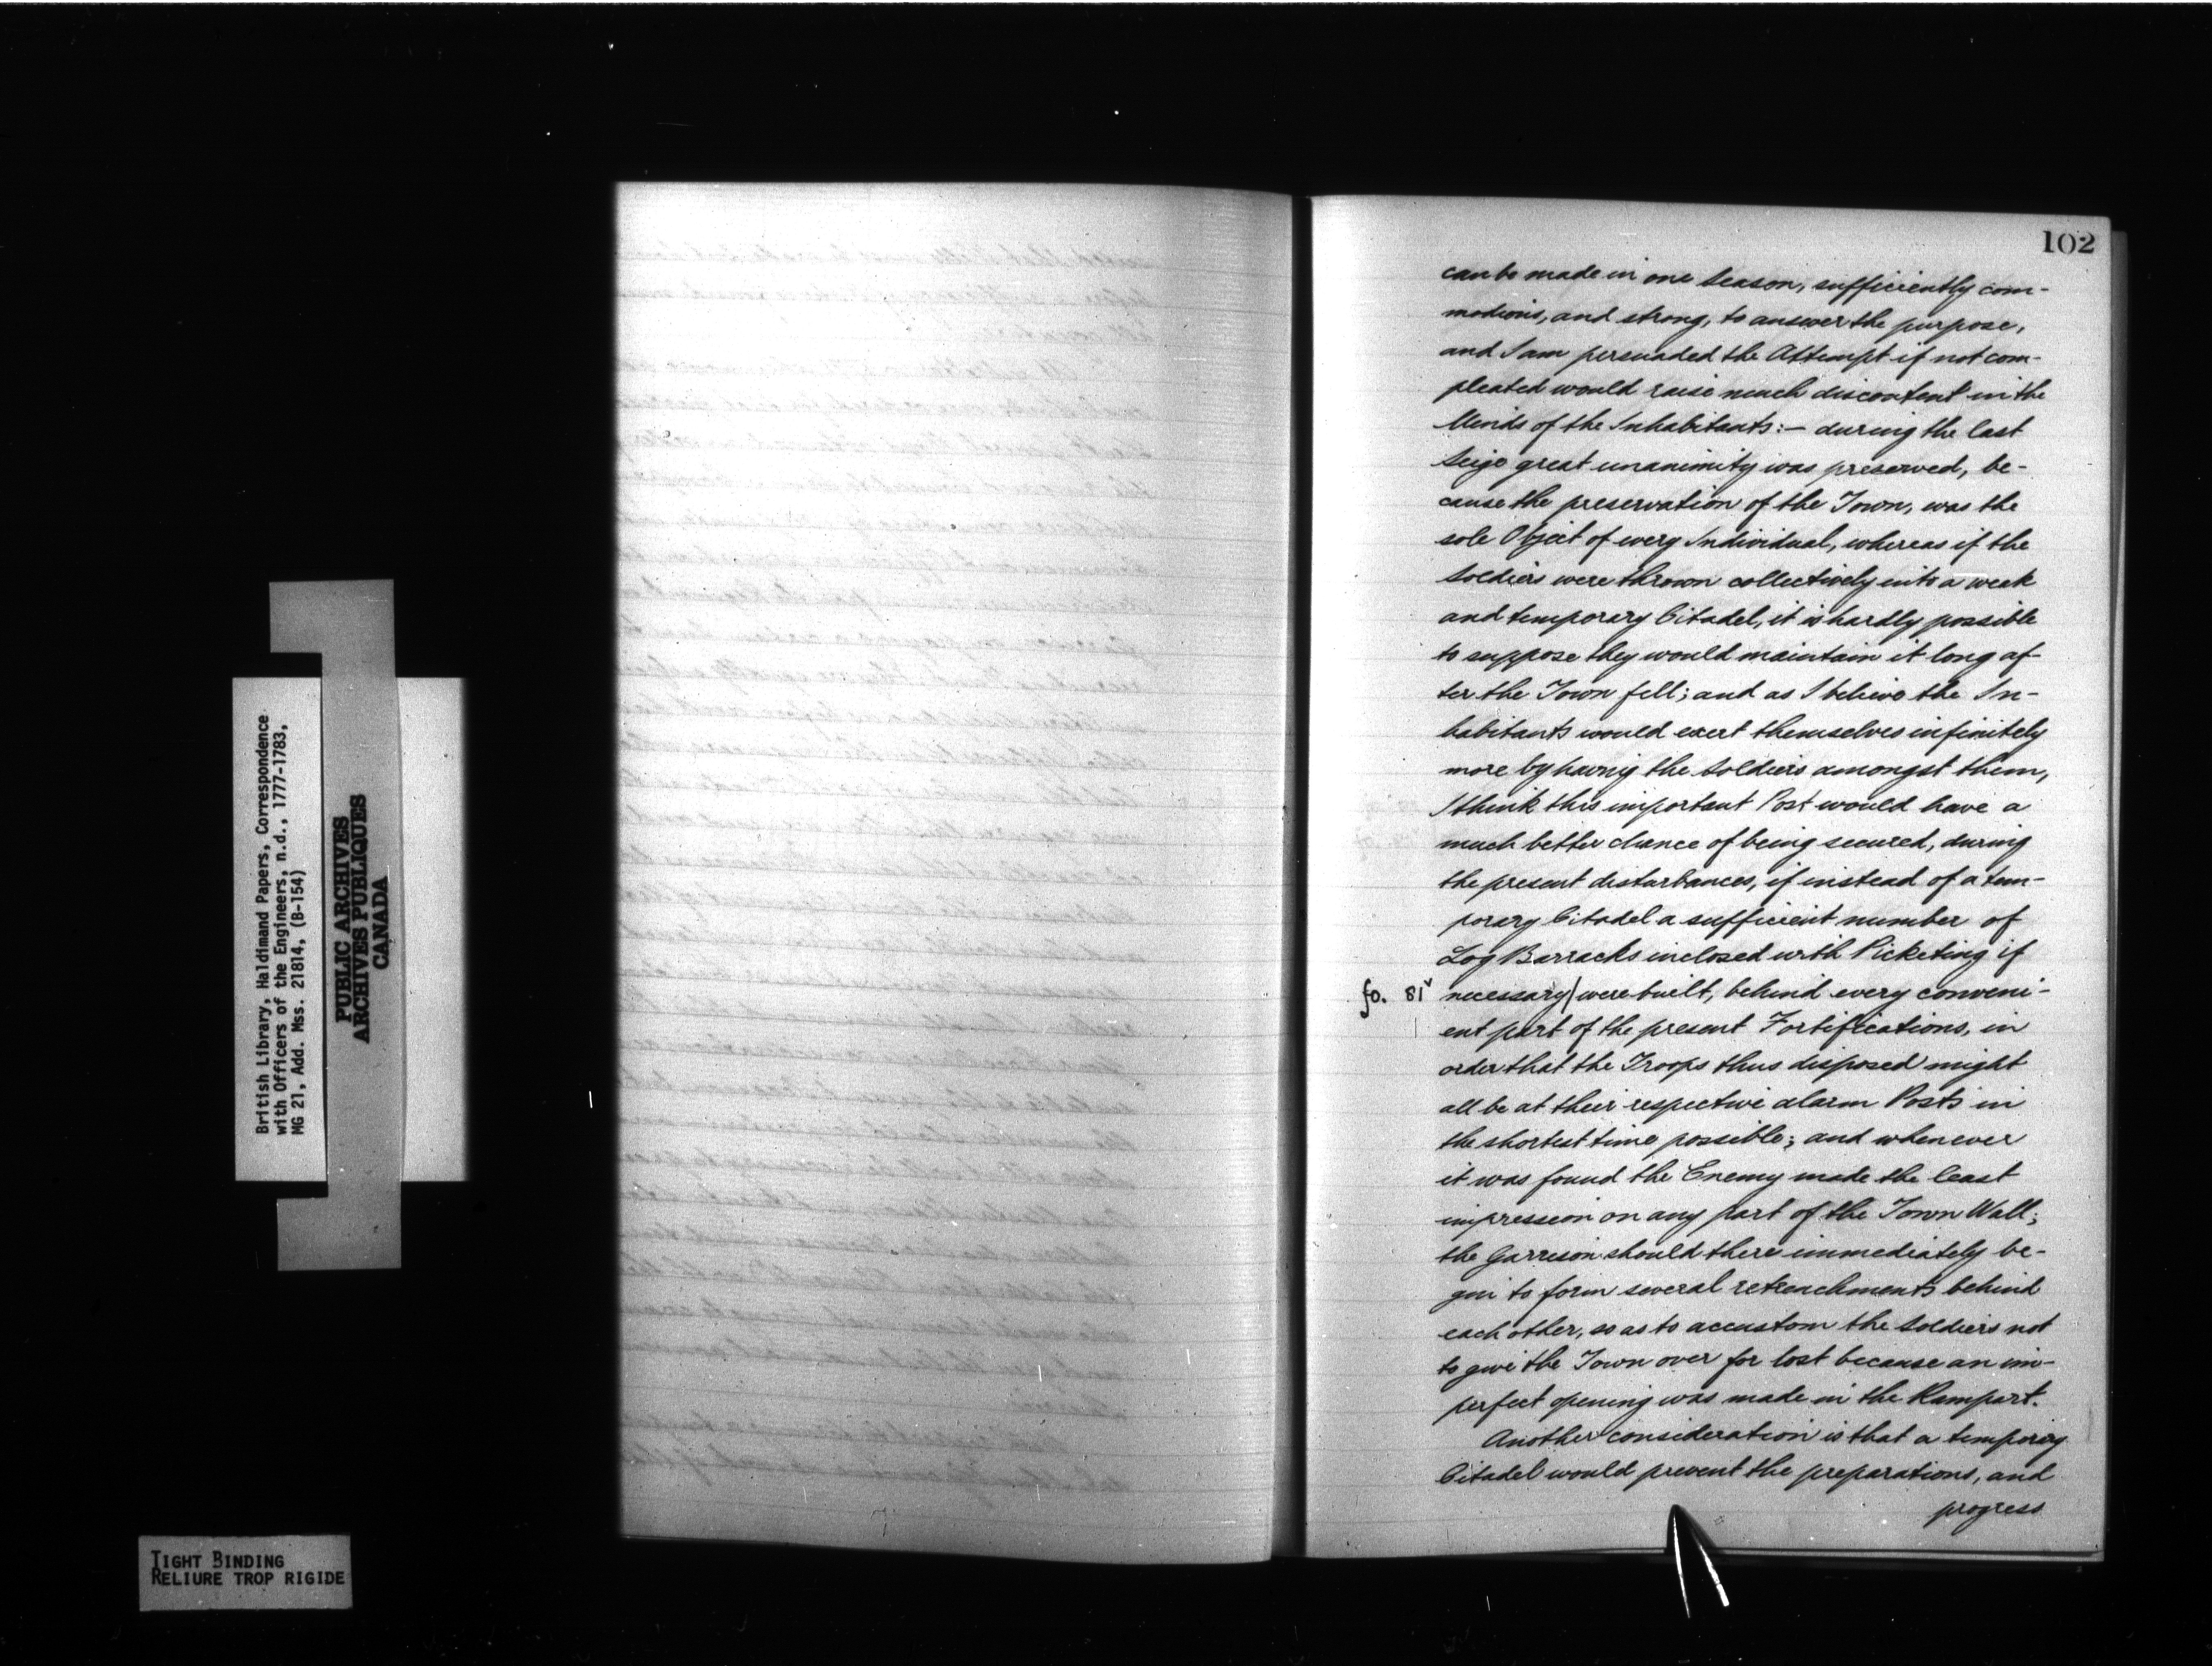 British Library, Haldimand Papers, Correspondence
with Officers of the Engineers, n.d., 1777-1783,
MG 21, Add. Mss. 21814, (B-154)
PUBLIC ARCHIVES
ARCHIVES PUBLIQUES
CANADA
TIGHT BINDING
RELIURE TROP RIGIDE
102
can be made in one Season, sufficiently com-
modious, and strong, to answer the purpose,
and I am persuaded the Attempt if not com-
pleated would raise much discontent in the
Minds of the Inhabitants:- during the last
Seige great unanimity was preserved, be-
cause the preservation of the Town, was the
sole Object of every Individual, whereas if the
Soldiers were thrown collectively into a weak
and temporary Citadel, it is hardly possible
to suppose they would maintain it long af-
ter the Town fell; and as I believe the In-
habitants would exert themselves infinitely
more by having the Soldiers amongst them,
I think this important Post would have a
much better chance of being secured, during
the present disturbances, if instead of a tem-
porary Citadel a sufficient number of
Log Barracks inclosed with Picketing if
fo. 81v necessary/ were built, behind every conveni-
ent part of the present Fortifications, in
order that the Troops thus disposed might
all be at their respective alarm Posts in
the shortest time possible; and whenever
it was found the Enemy made the least
impression on any part of the Town Wall;
the Garrison should there immediately be-
gin to form several retrenchments behind
each other, so as to accustom the Soldiers not
to give the Town over for lost because an im-
perfect opening was made in the Rampart.
Another consideration is that a temporary
Citadel would prevent the preparations, and
progress